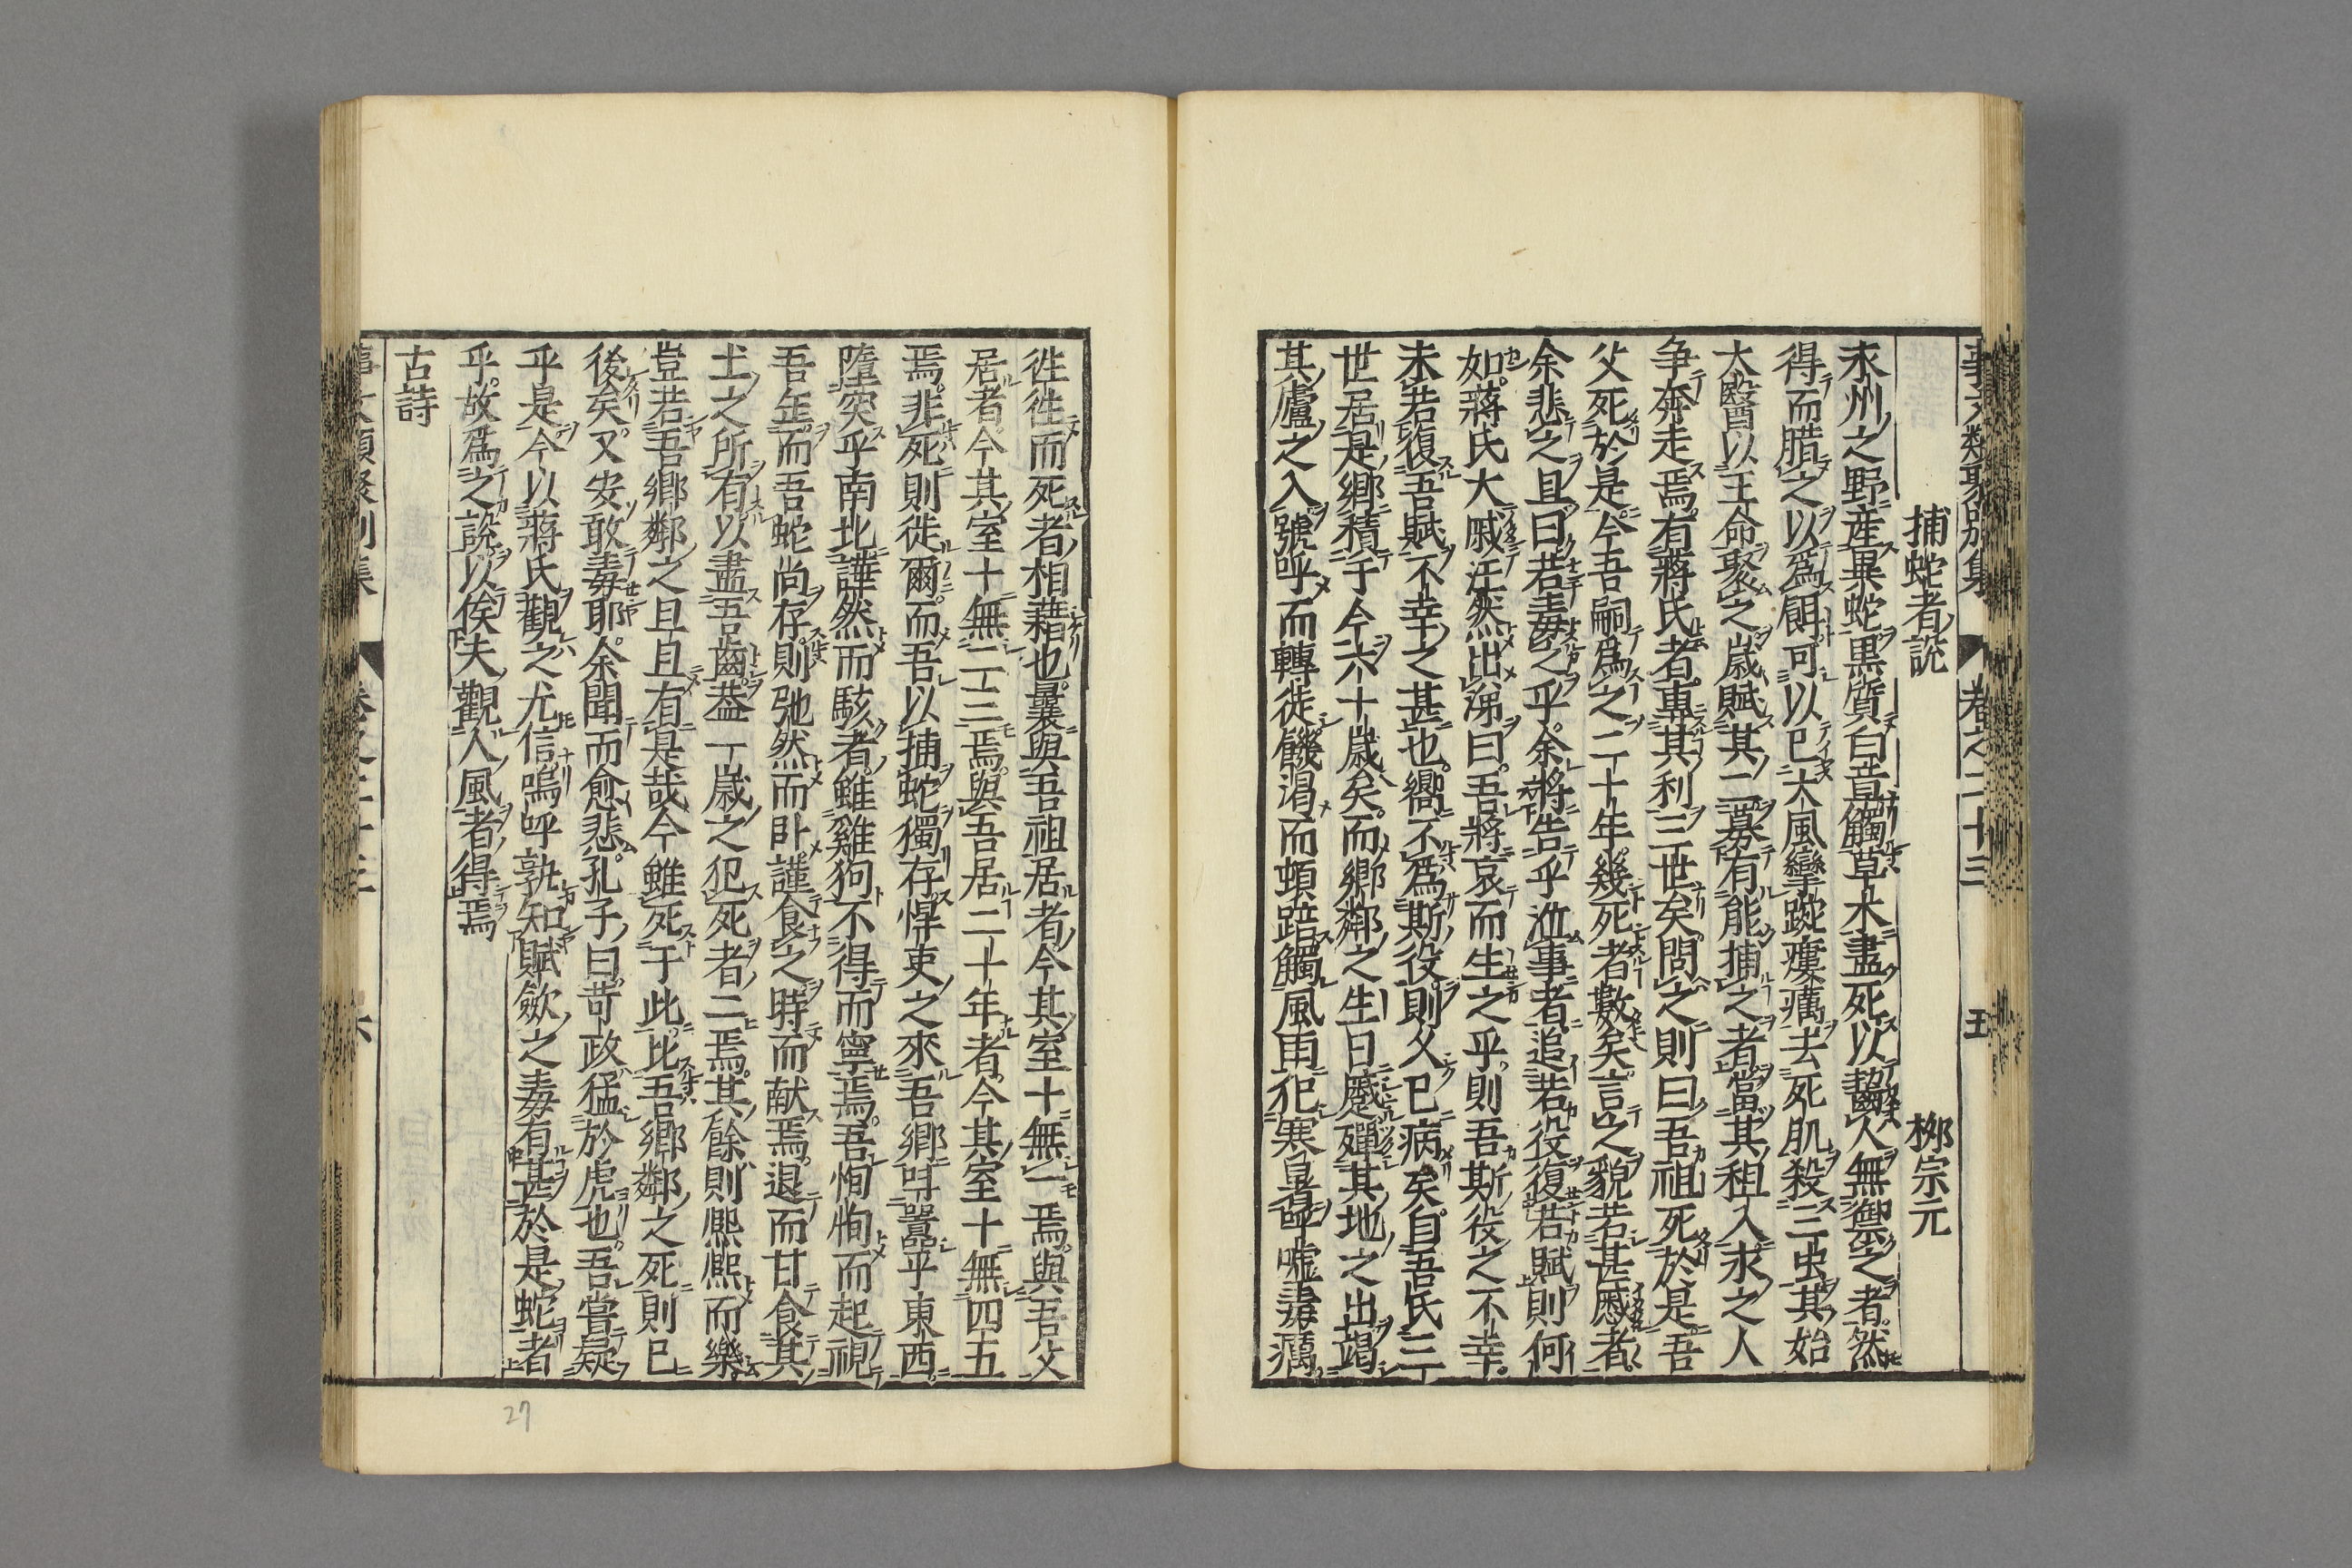 事文類聚別集 卷之二十三 五
捕蛇者說 柳宗元
永州之野産異蛇黒質白章觸草木盡死以齧人無禦之者然
得而腊之以爲餌可以已大風攣踠瘻癘去死肌殺三虫其始
大醫以王命聚之歳賦其二募有能捕之者當其租入求之人
争奔走焉有蔣氏者專其利三世矣問之則曰吾祖死於是吾
父死於是今吾嗣爲之二十年幾死者數矣言之貌若甚慼者
余悲之且曰若毒之乎余將告乎涖事者追若役復若賦則何
如蔣氏大慼汪然出涕曰吾將哀而生之乎則吾斯役之不幸
未若復吾賦不幸之甚也嚮不爲斯役則久已病矣自吾氏三
世居是鄕積于今六十歳矣而鄕鄰之生日蹙殫其地之出竭
其廬之入號呼而轉徙餓渇而頓踣觸風雨犯寒暑呼嘘毒癘
徃徃而死者相藉也曩與吾祖居者今其室十無一焉與吾父
居者今其室十無二三焉與吾居二十年者今其室十無四五
焉非死則徙爾而吾以捕蛇獨存悍吏之來吾鄕呌囂乎東西
隳突乎南北譁然而駭者雖雞狗不得而寧焉吾恂恂而起視
吾缶而吾蛇尚存則弛然而臥謹食之時而献焉退而甘食其
土之所有以盡吾齒葢一歳之犯死者二焉其餘則熈熈而樂
豈若吾鄕鄰之旦旦有是哉今雖死于此比吾鄕鄰之死則已
後矣又安敢毒耶余聞而愈悲孔子曰苛政猛於虎也吾嘗疑
乎是今以蔣氏觀之尤信嗚呼孰知賦歛之毒有甚於是蛇者
乎故爲之說以俟夫觀人風者得焉
古詩
事文類聚別集 卷之二十三 六
27